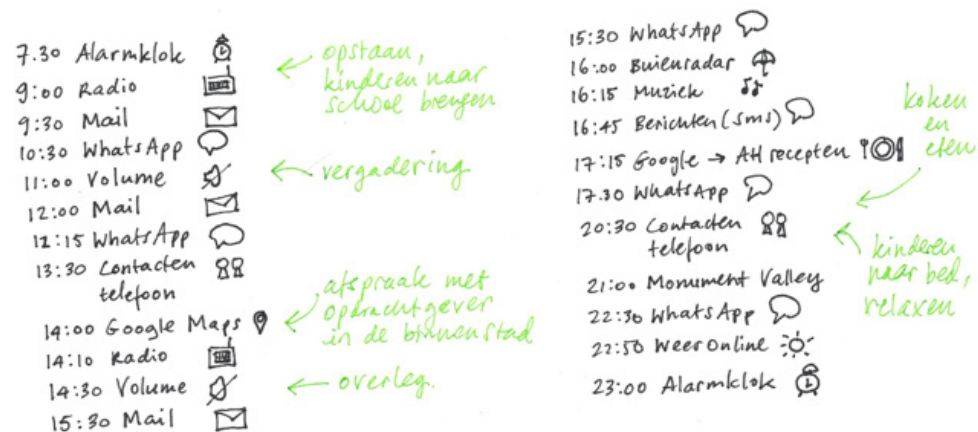 7.30 Alarmklok
9:00 Radio
9:30 Mail
10:30 WhatsApp
11:00 Volume
12:00 Mail
12:15 WhatsApp
13:30 Contacten
telefoon
14:00 Google Maps
14:10 Radio
14:30 Volume
15:30 Mail
opstaan,
kinderen naar
school brengen
vergadering
afspraak met
opdrachtgever
in de binnenstad
overleg.
15:30 WhatsApp
16:00 Buienradar
16:15 Muziek
16:45 Berichten (sms)
17:15 Google → AH recepten
17.30 WhatsApp
20:30 Contacten
telefoon
21:00 Monument Valley
22:30 WhatsApp
22:50 WeerOnline
23:00 Alarmklok
koken
en
eten
kinderen
naar bed,
relaxen